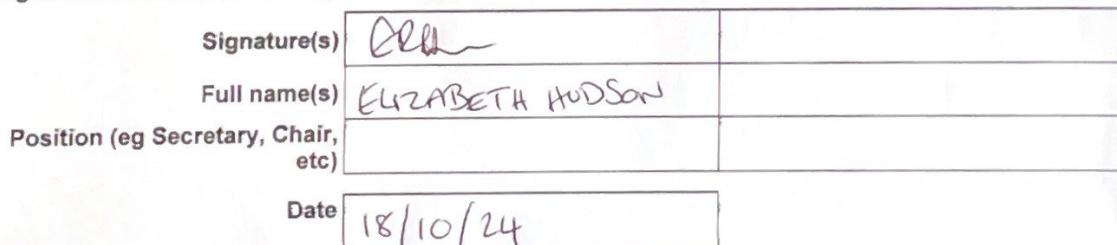 Signature(s)
Full name(s) ELIZABETH HUDSON
Position (eg Secretary, Chair,
etc)
Date 18/10/24